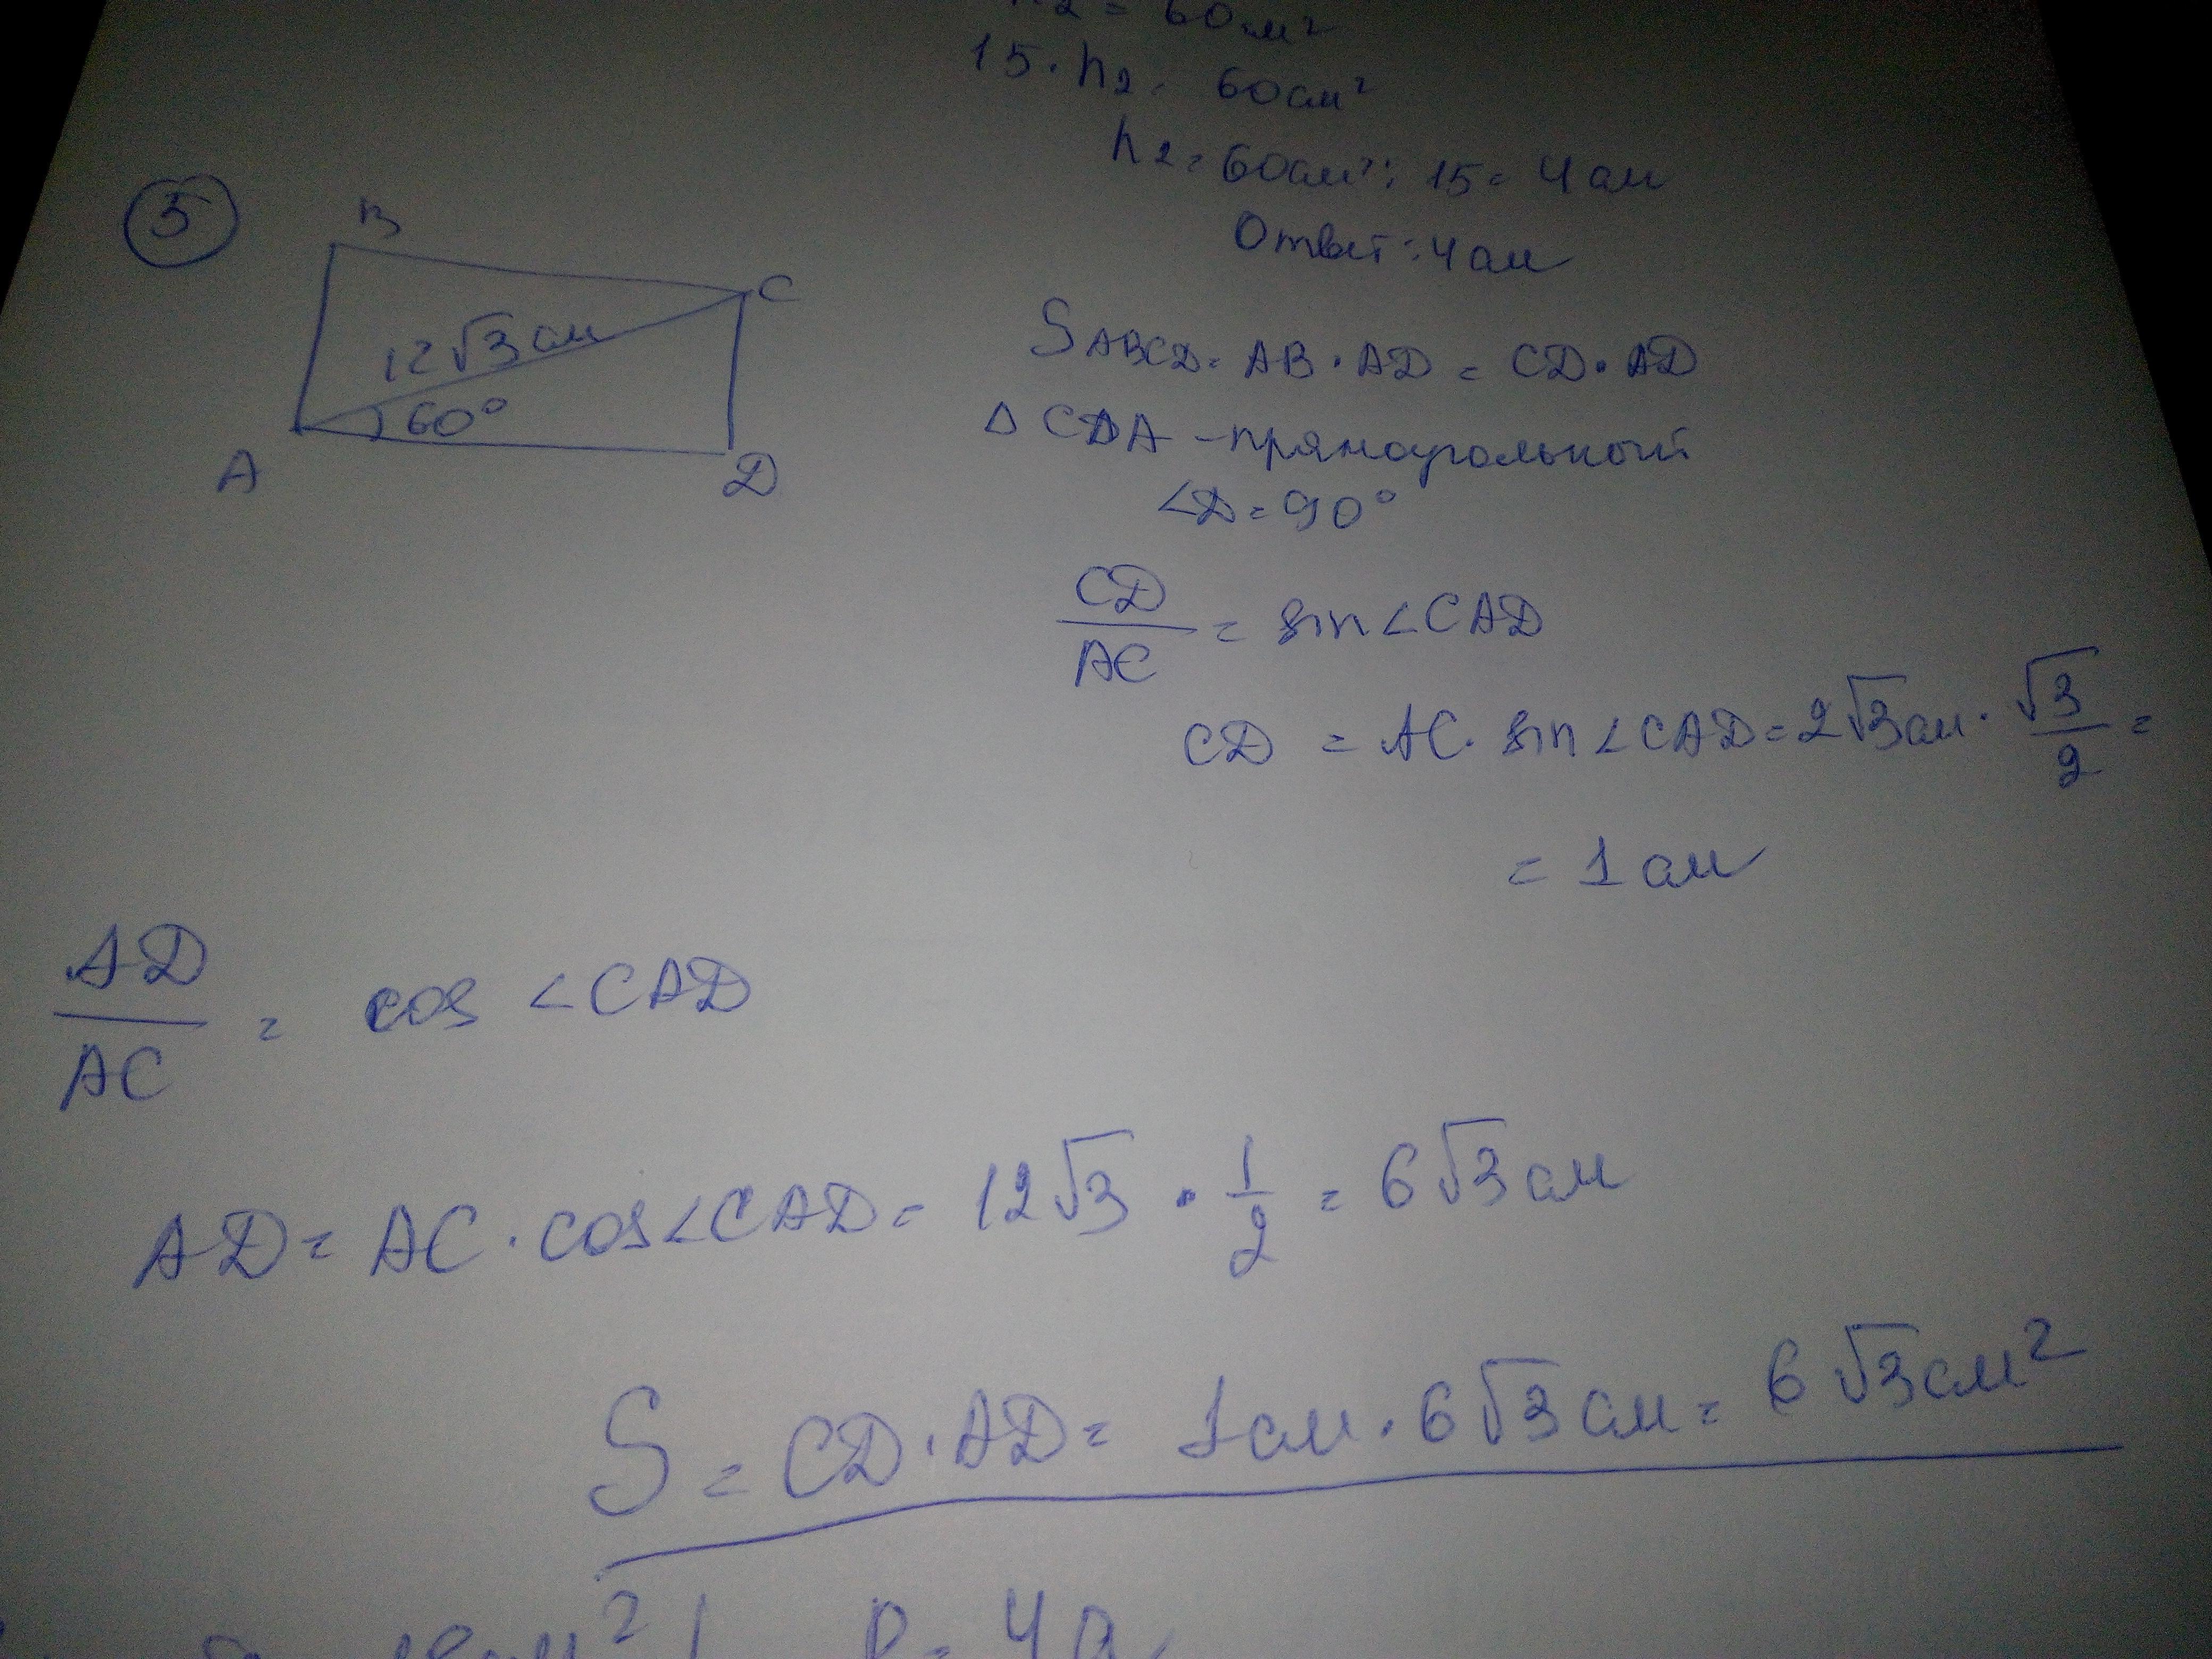 h₂ = 60см²
15 · h₂ = 60см²
h₂ = 60см² : 15 = 4см
Ответ: 4см
5
B
C
12√3 см
60°
A
D
S ABCD = AB · AD = CD · AD
△ CDA - прямоугольный
∠D = 90°
CD/AC = sin∠CAD
CD = AC · sin∠CAD = 2√3см · √3/2 =
= 1см
AD/AC = cos ∠CAD
AD = AC · cos∠CAD = 12√3 · 1/2 = 6√3см
S = CD · AD = 1см · 6√3см = 6√3см²
P = 4a